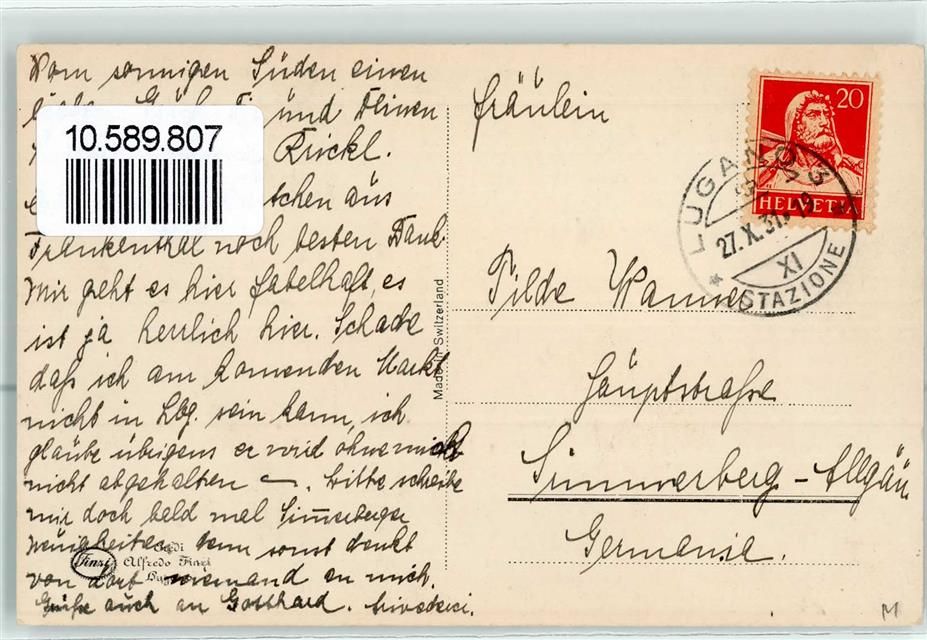 Vom sonnigen Süden einen
und Deinen
10.589.807
Rückl.
aus
Frankenthal noch besten Dank
Mir geht es hier fabelhaft, es
ist ja herrlich hier. Schade
daß ich am komenden Markt
nicht in Lbg. sein kann, ich
glaube übrigens er wird ohne mich
nicht abgehalten –. Bitte schreibe
mir doch bald mal Simmerberger
Neuigkeiten denn sonst denkt
von dort niemand an mich.
Grüße auch an Gotthard. Arivederci.
Finzi
Ecdi
Alfredo Finzi
Made in Switzerland
Fräulein
Tilde Wanner
Hauptstraße
Simmerberg - Allgäu
Germania.
20
HELVETIA
LUGANO 3
27.X.31. 19
XI
STAZIONE
M